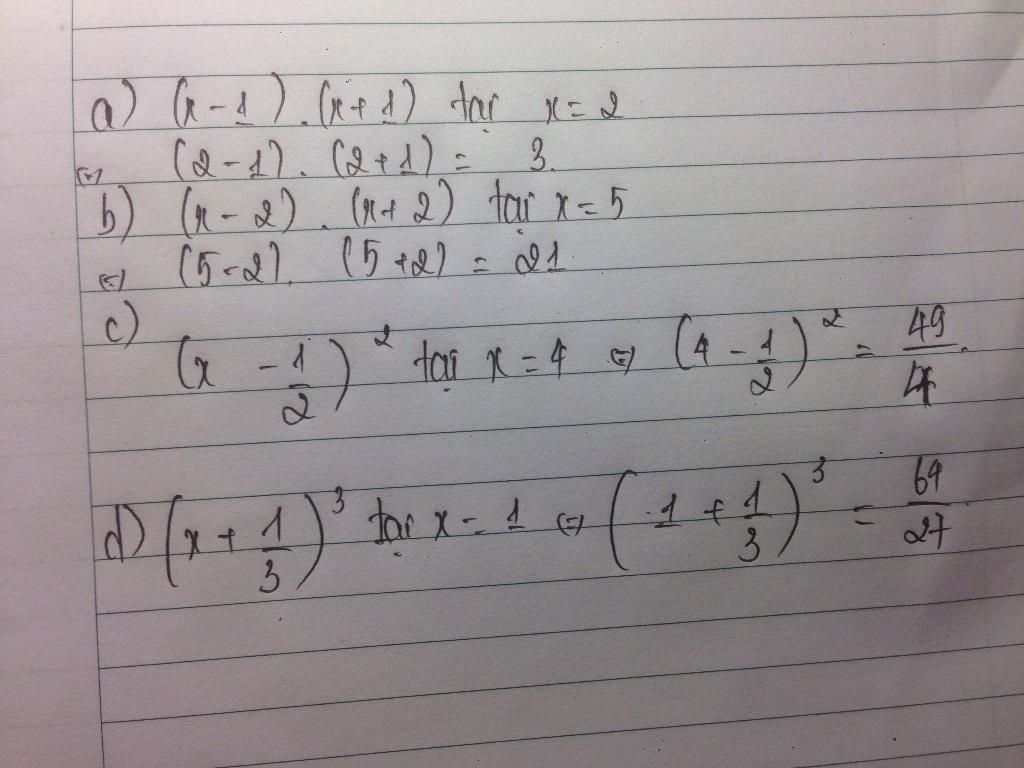 a) (x-1).(x+1) tại x=2
⇔ (2-1).(2+1) = 3.
b) (x-2).(x+2) tại x=5
⇔ (5-2). (5+2) = 21
c)
(x - 1/2)² tại x=4 ⇔ (4 - 1/2)² = 49/4.
d) (x + 1/3)³ tại x = 1 ⇔ (1 + 1/3)³ = 64/27